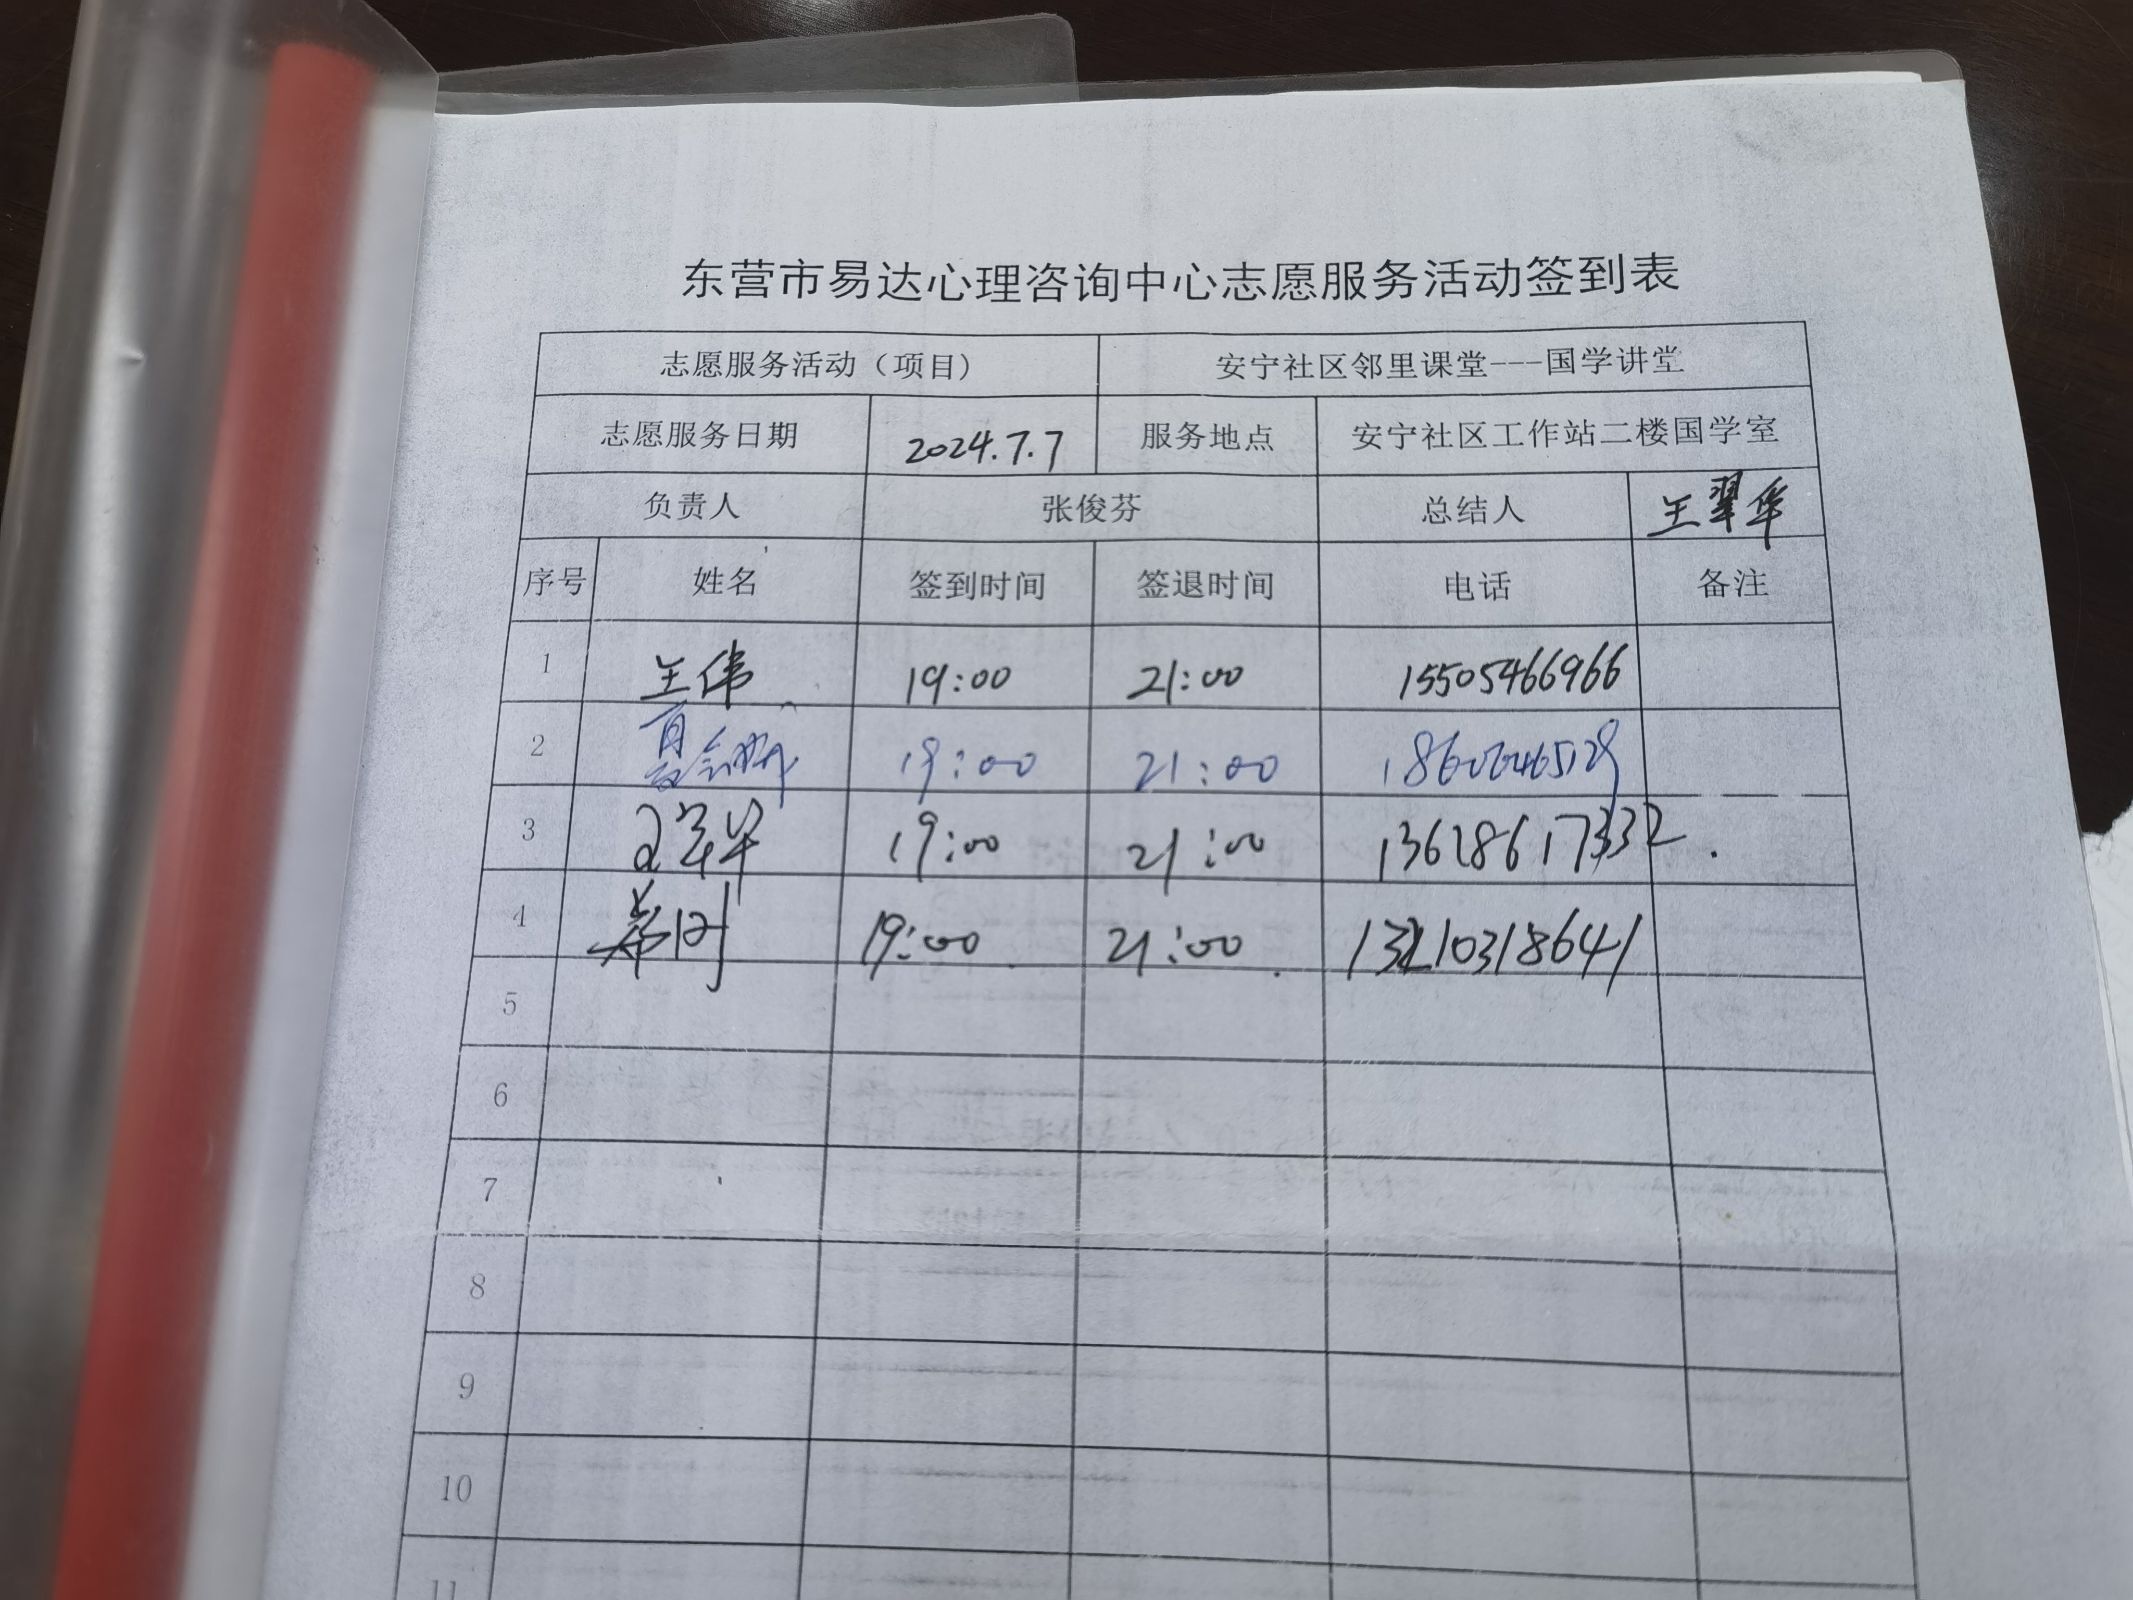 东营市易达心理咨询中心志愿服务活动签到表
志愿服务活动（项目） 安宁社区邻里课堂---国学讲堂
志愿服务日期 2024.7.7 服务地点 安宁社区工作站二楼国学室
负责人 张俊芬 总结人 王翠华
序号 姓名 签到时间 签退时间 电话 备注
1 王伟 19:00 21:00 15505466966
2 19:00 21:00
3 19:00 21:00
4 19:00 21:00 13210318641
5
6
7
8
9
10
11